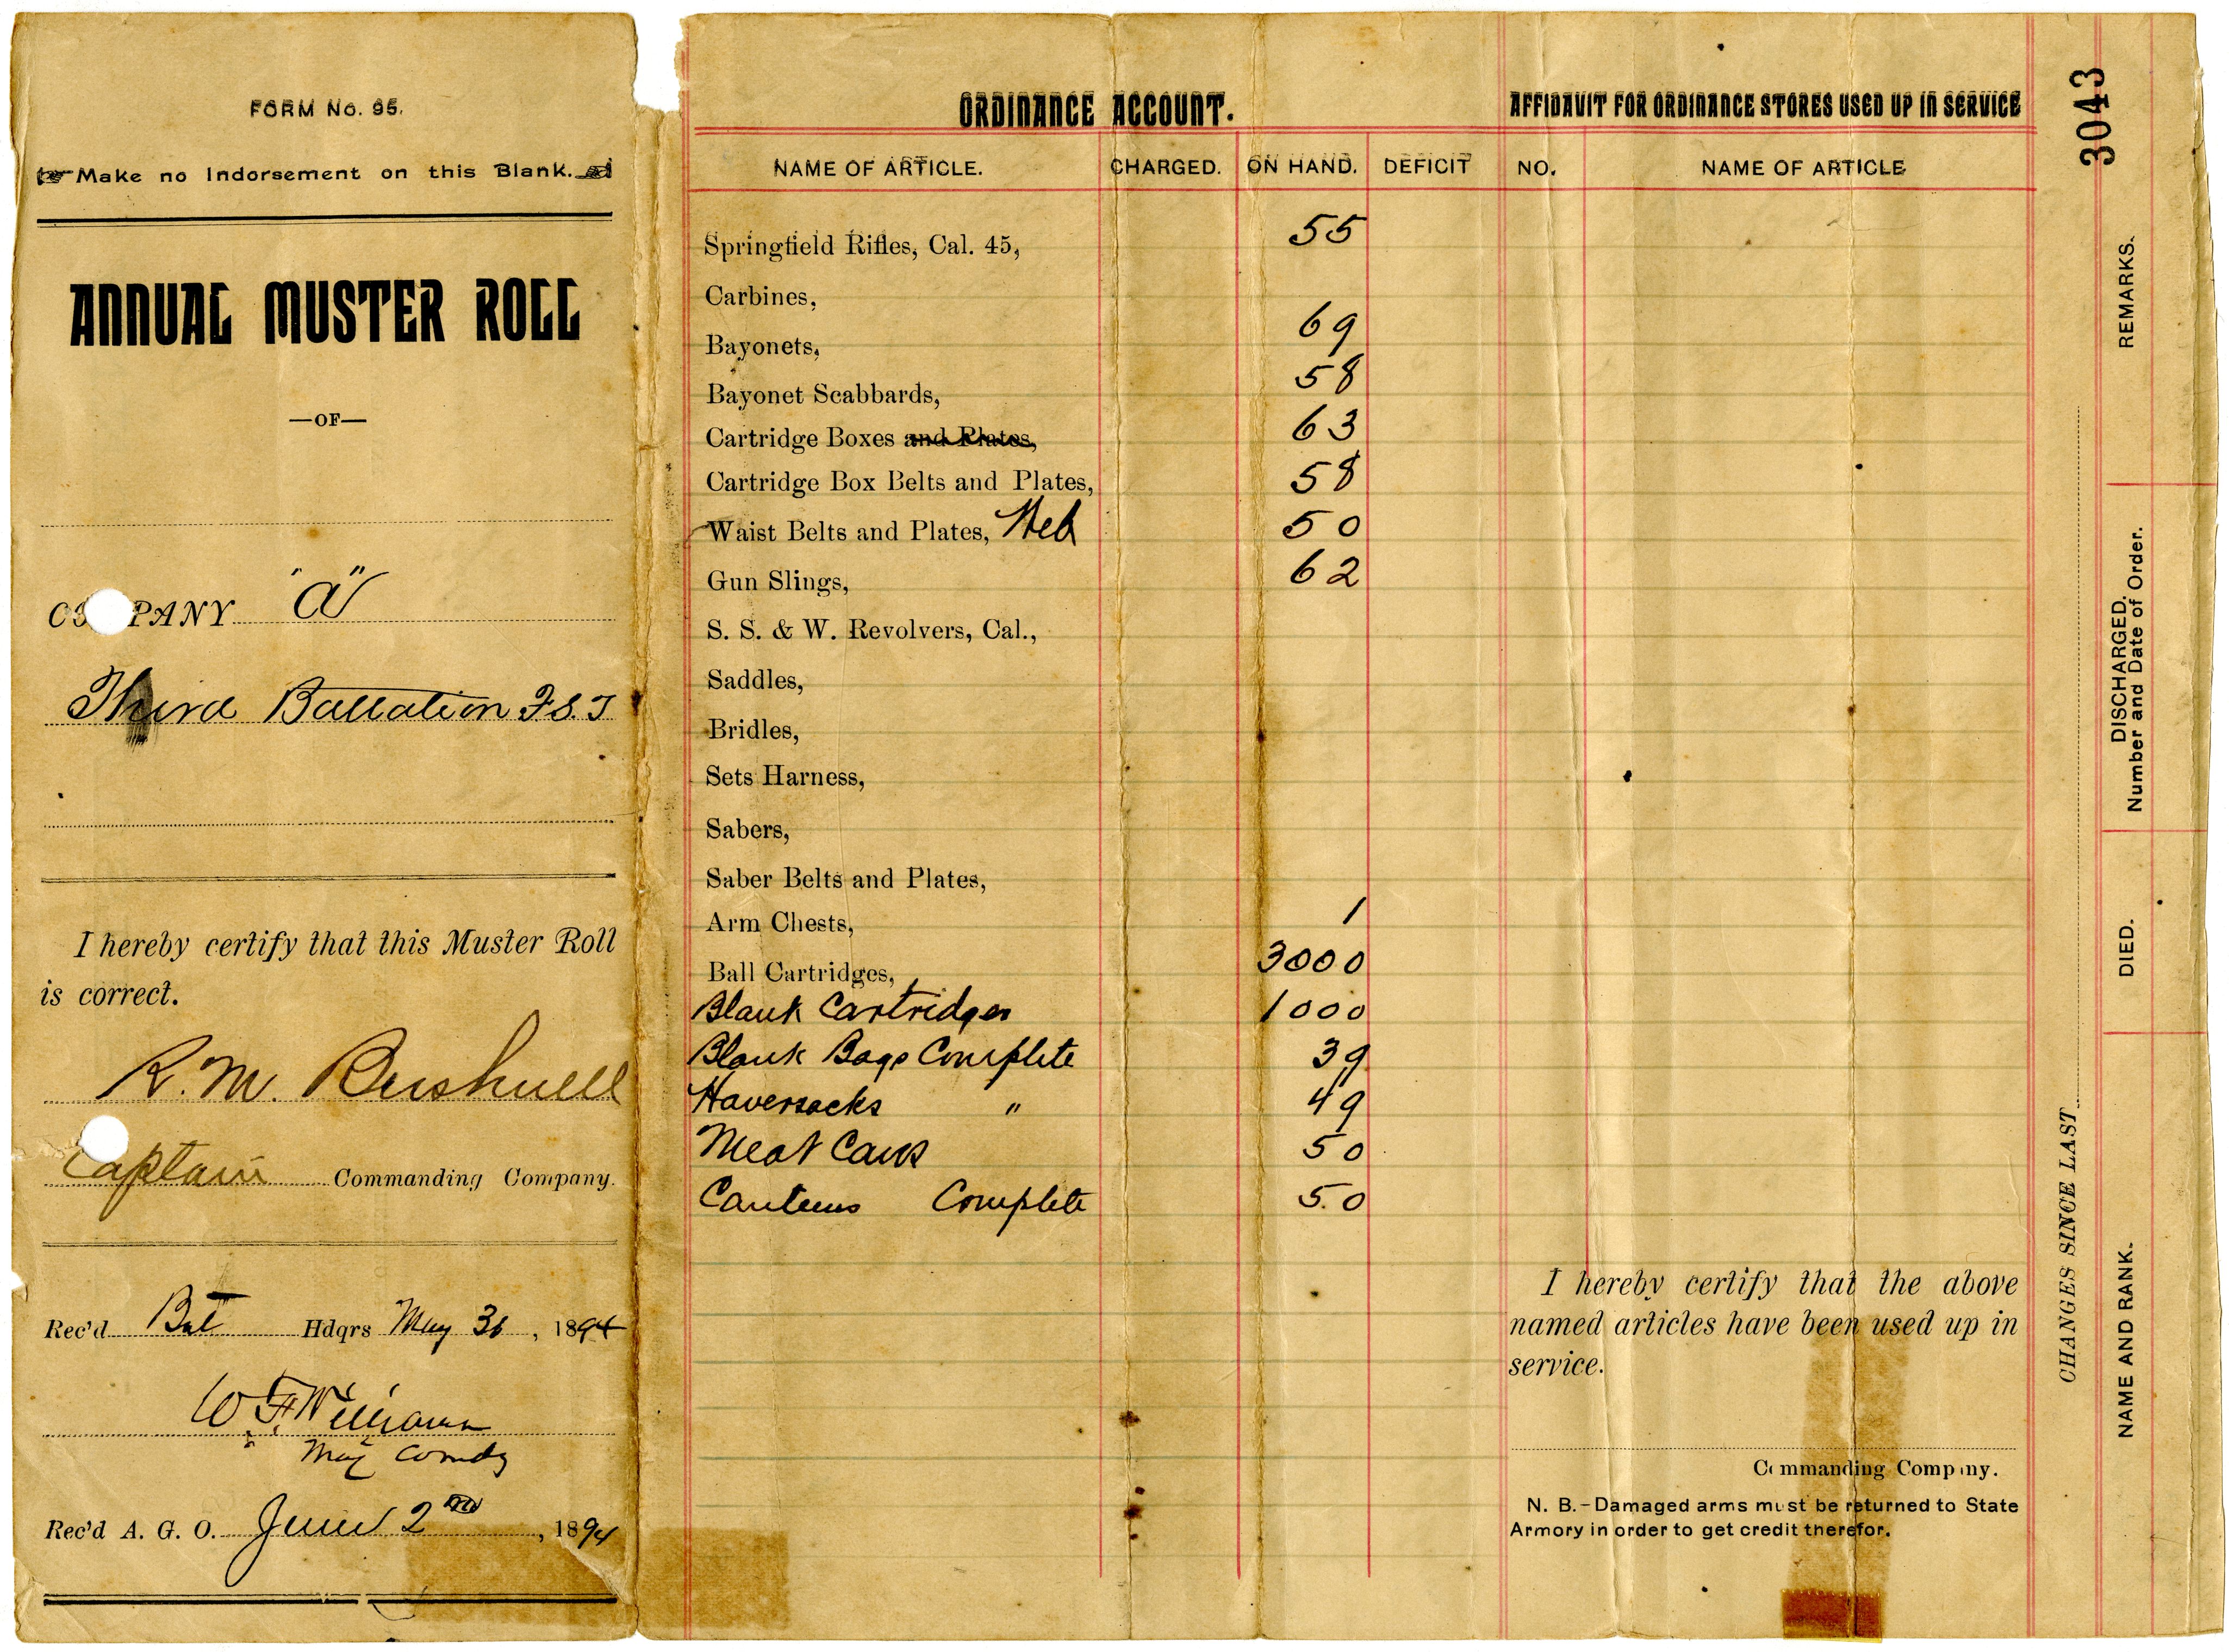 FORM No. 95.
Make no Indorsement on this Blank.
ANNUAL MUSTER ROLL
—OF—
COMPANY "A"
Third Battalion F.S.T
I hereby certify that this Muster Roll
is correct.
R. M. Bushnell
Captain Commanding Company.
Rec'd Bat Hdqrs May 31, 1894
W. F. Williams
Maj Comdg
Rec'd A. G. O. June 2nd, 1894
ORDINANCE ACCOUNT.
NAME OF ARTICLE. CHARGED. ON HAND. DEFICIT
Springfield Rifles, Cal. 45, 55
Carbines,
Bayonets, 69
Bayonet Scabbards, 58
Cartridge Boxes and Plates, 63
Cartridge Box Belts and Plates, 58
Waist Belts and Plates, Web 50
Gun Slings, 62
S. S. & W. Revolvers, Cal.,
Saddles,
Bridles,
Sets Harness,
Sabers,
Saber Belts and Plates,
Arm Chests, 1
Ball Cartridges, 3000
Blank Cartridges 1000
Blank Bags Complete 39
Haversacks " 49
Meat Cans 50
Canteens Complete 50
AFFIDAVIT FOR ORDINANCE STORES USED UP IN SERVICE
NO. NAME OF ARTICLE
I hereby certify that the above
named articles have been used up in
service.
Commanding Company.
N. B.-Damaged arms must be returned to State
Armory in order to get credit therefor.
3043
CHANGES SINCE LAST
NAME AND RANK.
DIED.
DISCHARGED.
Number and Date of Order.
REMARKS.